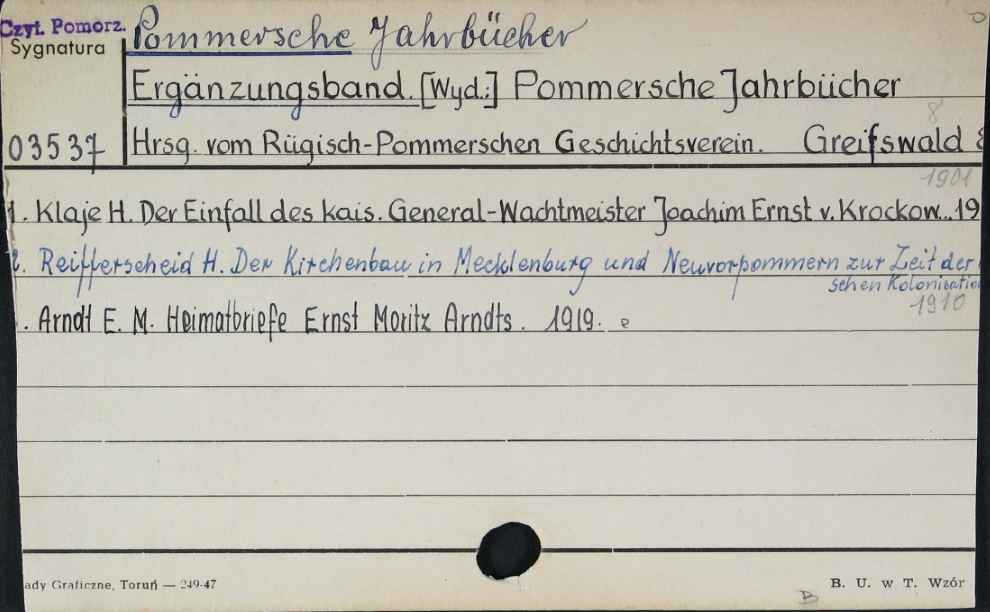 Czyt. Pomorz. Pommersche Jahrbücher
Sygnatura
Ergänzungsband. [Wyd.:] Pommersche Jahrbücher
8
03537 Hrsg. vom Rügisch-Pommerschen Geschichtsverein. Greifswald
1901
1. Klaje H. Der Einfall des kais. General-Wachtmeister Joachim Ernst v. Krockow... 19
2. Reifferscheid H. Der Kirchenbau in Mecklenburg und Neuvorpommern zur Zeit der
schen Kolonisatio
1910
. Arndt E. M. Heimatbriefe Ernst Moritz Arndts. 1919. e
ady Graficzne, Toruń — 249-47 B. U. w T. Wzór
B